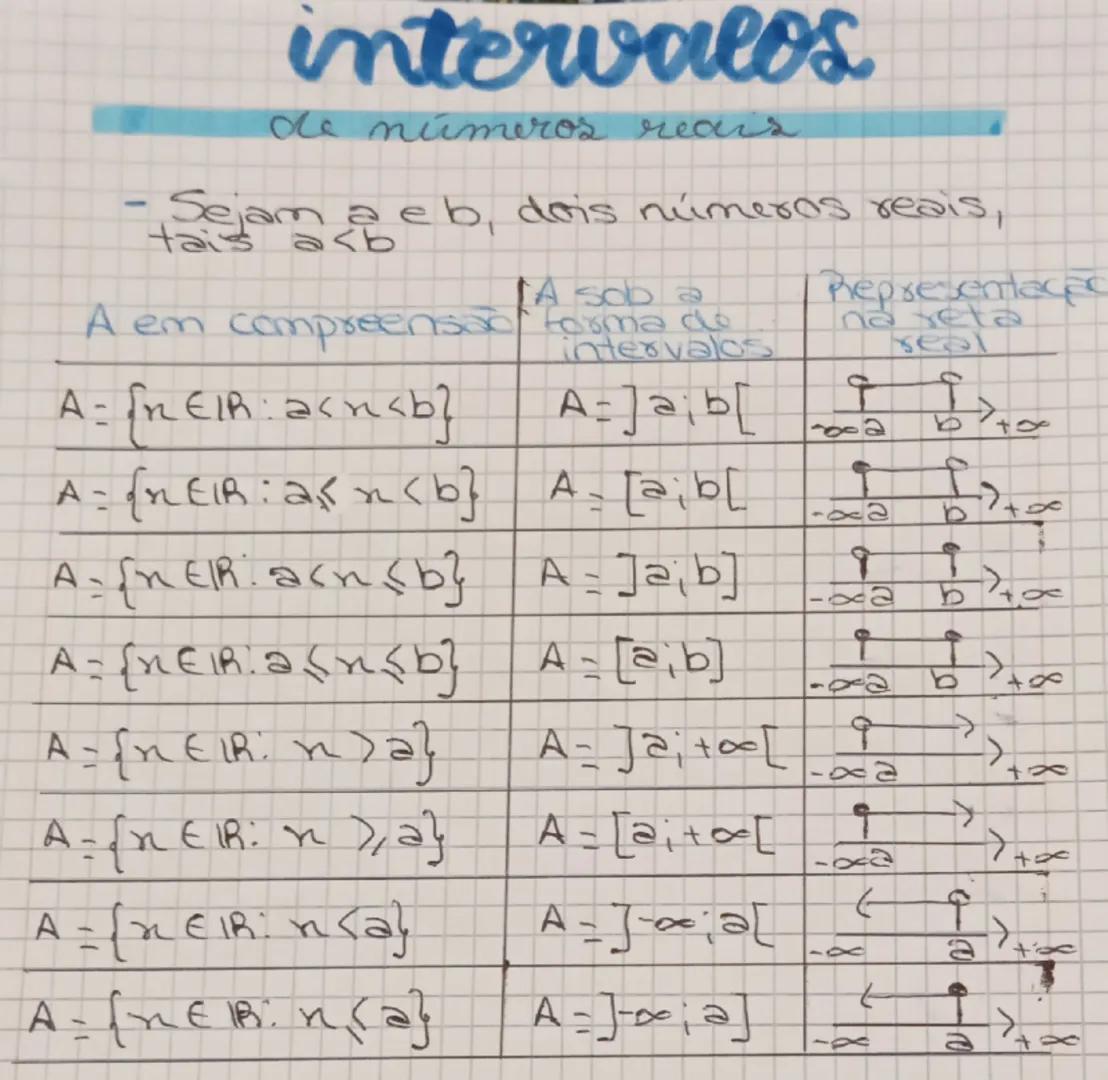 intervalos
de números reais
- Sejam a e b, dois números reais,
tais a<b
A em compreensão
A sob a
forma de
intervalos
Representação
na reta
real
A={n∈IR: a<n<b} A=]a;b[ -∞ a b +∞
A={n∈IR: a⩽n<b} A=[a;b[ -∞ a b +∞
A={n∈IR: a<n⩽b} A=]a;b] -∞ a b +∞
A={n∈IR: a⩽n⩽b} A=[a;b] -∞ a b +∞
A={n∈IR: n>a} A=]a;+∞[ -∞ a +∞
A={n∈IR: n⩾a} A=[a;+∞[ -∞ a +∞
A={n∈IR: n<a} A=]-∞;a[ -∞ a +∞
A={n∈IR: n⩽a} A=]-∞;a] -∞ a +∞